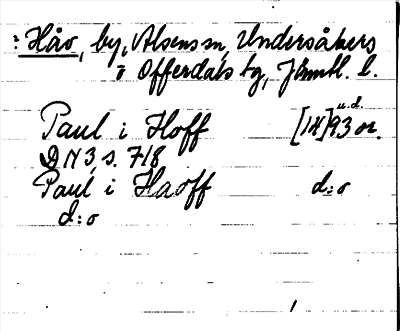 : Håv, by, Alsens sn, Undersåkers
o Offerdals tg, Jämtl. l.
Paul i Hoff [14]93 or. u.d.
DN 3, s. 718
Paul i Haoff d:o
d:o